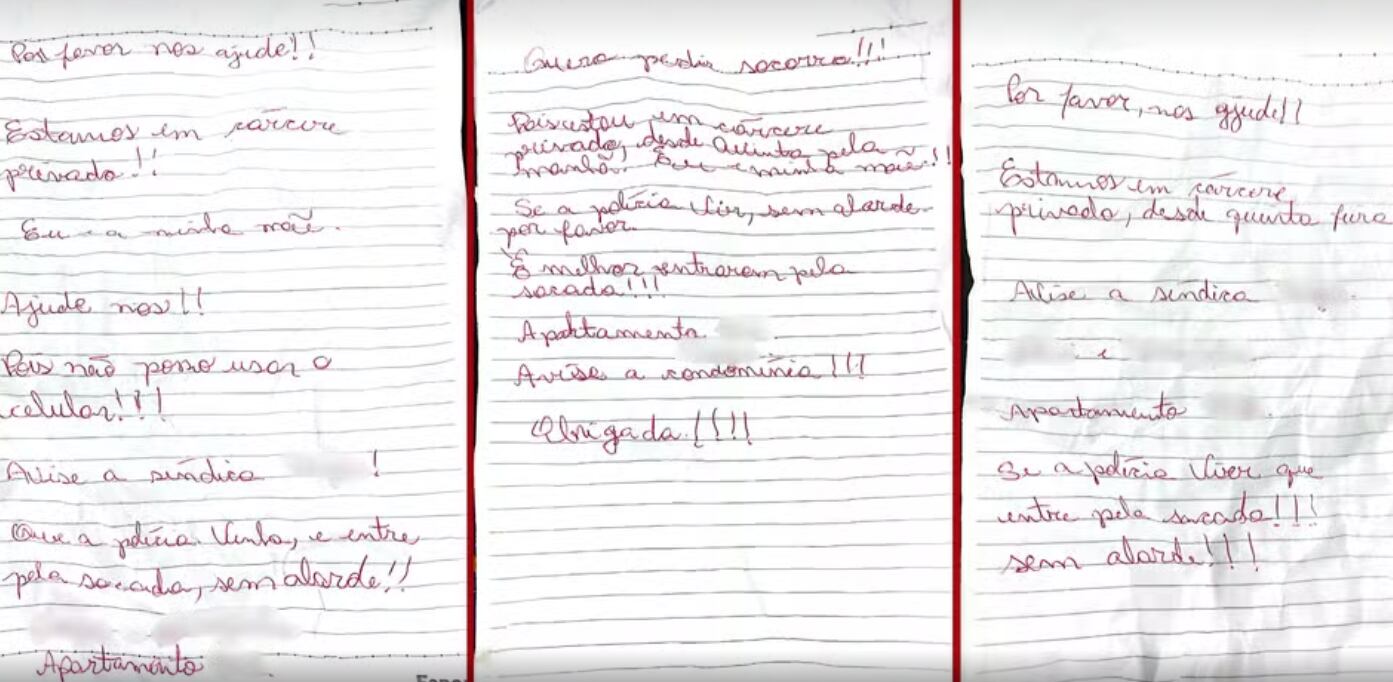 Por favor nos ajude!!
Estamos em cárcere
privado!!
Eu e a minha mãe.
Ajude nos!!
Pois não posso usar o
celular!!!
Avise a síndica !
Que a polícia venha, e entre
pela sacada, sem alarde!!
Apartamento
Quero pedir socorro!!!
Pois estou em cárcere
privado, desde Quinta pela
manhã. Eu e minha mãe!!
Se a polícia vir, sem alarde
por favor.
É melhor entrarem pela
sacada!!!
Apartamento
Avise a condomínia!!!
Obrigada!!!!
Por favor, nos ajude!!
Estamos em cárcere
privado, desde quinta feira
Avise a síndica
e
Apartamento
Se a polícia vier que
entre pela sacada!!!
sem alarde!!!